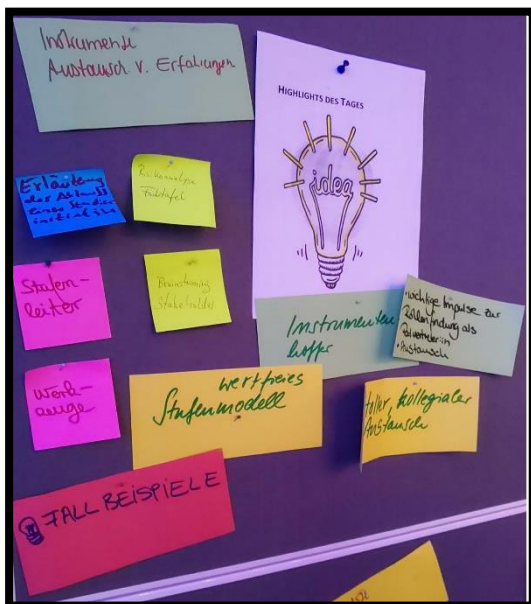 Instrumente
Austausch v. Erfahrungen
HIGHLIGHTS DES TAGES
idea
Erläuterung
des Ablaufs
einer Studien
Stufen-
leiter
Brainstorming
Instrumenten
koffer
wichtige Impulse zur
Rollenfindung als
• Austausch
Werk-
zeuge
wertfreies
Stufenmodell
toller, kollegialer
Austausch
FALLBEISPIELE